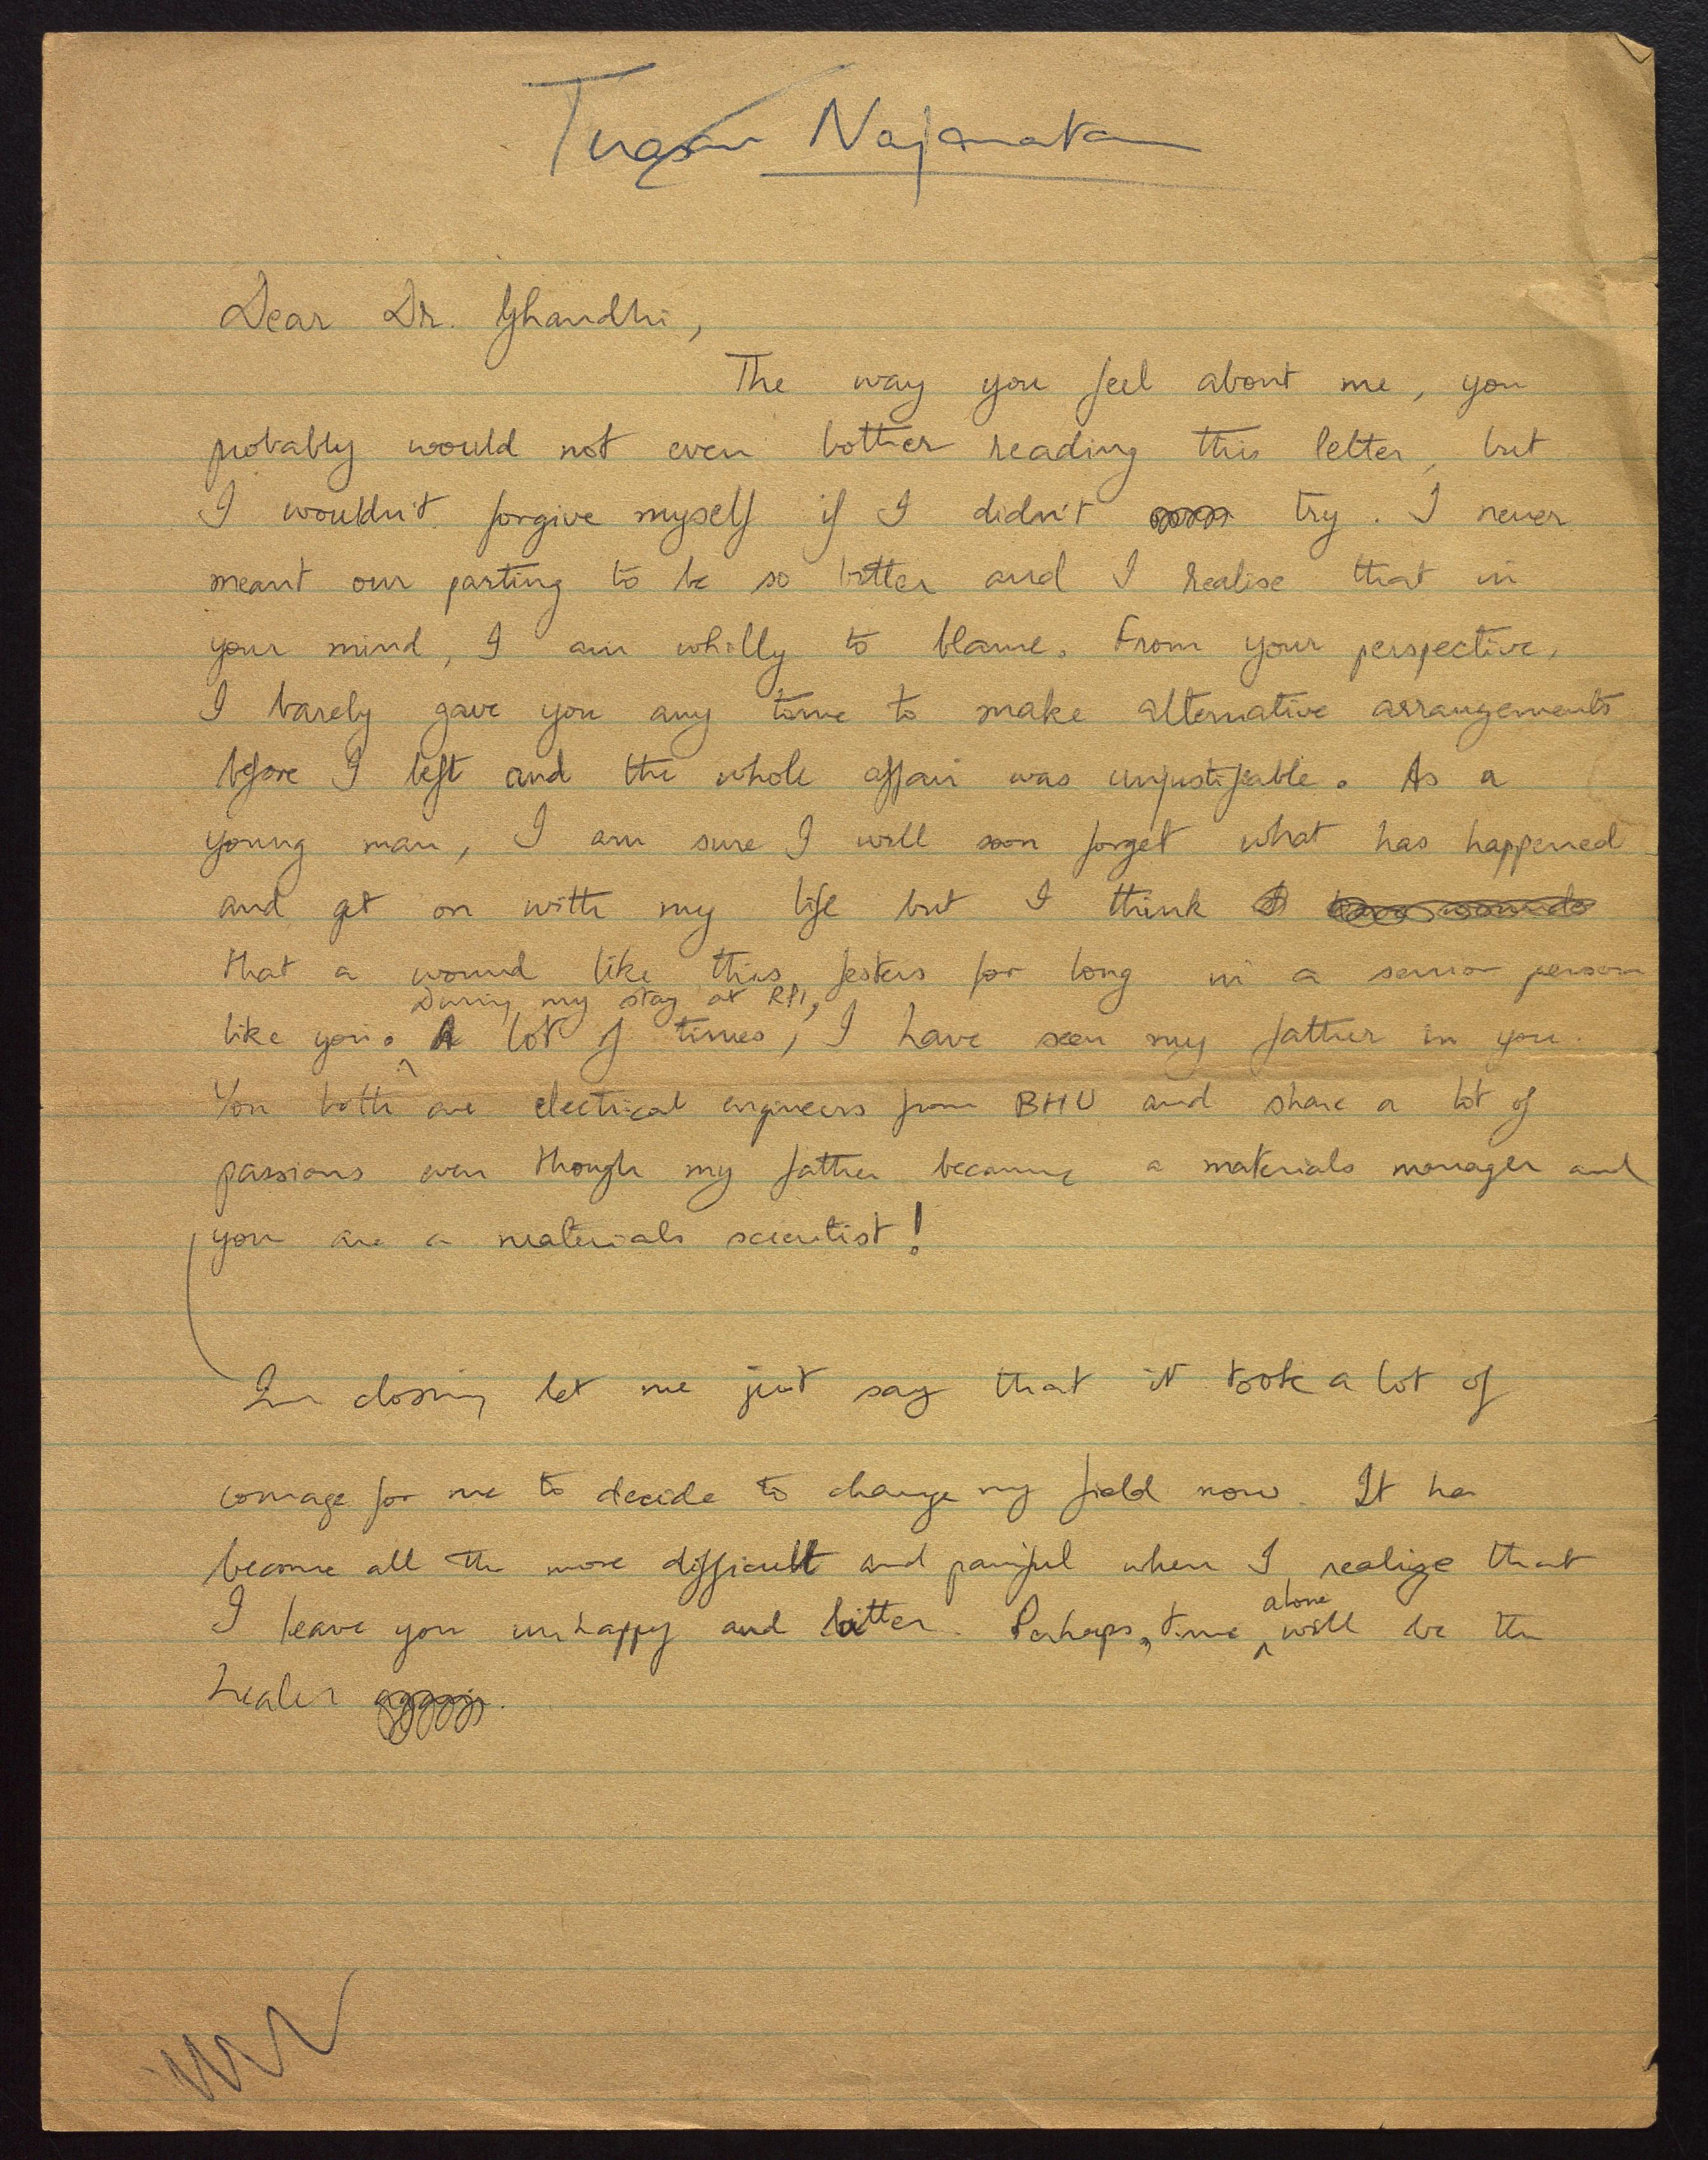 Dear Dr. Ghandhi,
The way you feel about me, you
probably would not even bother reading this letter, but
I wouldn't forgive myself if I didn't try. I never
meant our parting to be so bitter and I realise that in
your mind, I am wholly to blame. From your perspective,
I barely gave you any time to make alternative arrangements
before I left and the whole affair was unjustifiable. As a
young man, I am sure I will soon forget what has happened
and get on with my life but I think
that a wound like this festers for long in a senior person
During my stay at RPI,
like you. A lot of times, I have seen my father in you.
You both are electrical engineers from BHU and share a lot of
passions even though my father became a materials manager and
you are a materials scientist!
In closing let me just say that it took a lot of
courage for me to decide to change my field now. It has
become all the more difficult and painful when I realize that
alone
I leave you unhappy and bitter. Perhaps, time will be the
healer.